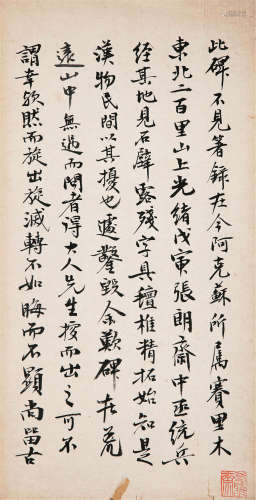 此碑不見箸録在今阿克蘇所屬賽里木
東北二百里山上光緒戊寅張朗齋中丞統兵
經其地見石壁露殘字具氊椎精拓始知是
漢物民間以其擾也遽鑿毀余歎碑在荒
遠山中無過而問者得大人先生搜而出之可不
謂幸欤然而旋出旋滅轉不如晦而不顯尚留古